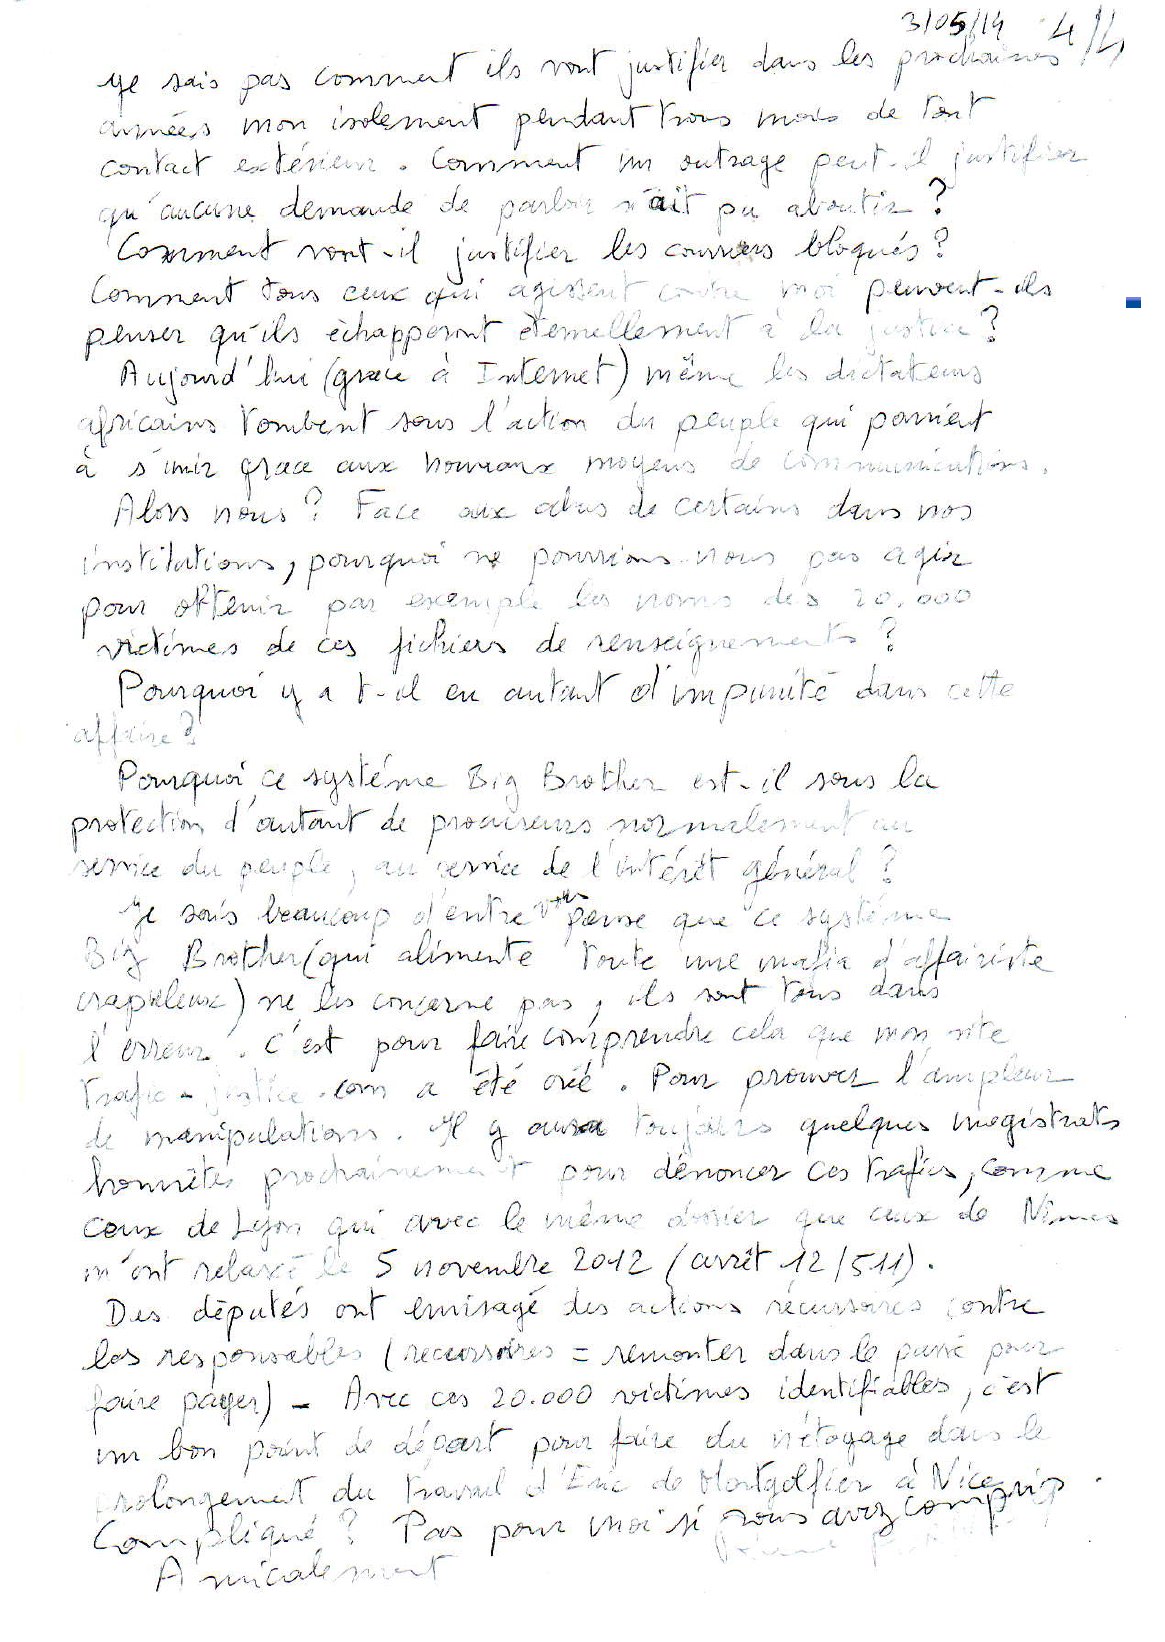 3/05/14 4/4
Je sais pas comment ils vont justifier dans les prochaines
années mon isolement pendant trois mois de tout
contact extérieur. Comment un outrage peut-il justifier
qu'aucune demande de parloir n'ait pu aboutir ?
Comment vont-il justifier les courriers bloqués ?
Comment tous ceux qui agissent contre moi peuvent-ils
penser qu'ils échapperont éternellement à la justice ?
Aujourd'hui (grace à Internet) même les dictateurs
africains tombent sous l'action du peuple qui parvient
à s'unir grace aux nouveaux moyens de communications.
Alors nous ? Face aux abus de certains dans nos
institutions, pourquoi ne pourrions-nous pas agir
pour obtenir par exemple les noms des 20.000
victimes de ces fichiers de renseignements ?
Pourquoi y a t-il eu autant d'impunité dans cette
affaire ?
Pourquoi ce systéme Big Brother est-il sous la
protection d'autant de procureurs normalement au
service du peuple, au service de l'intérêt général ?
Je sais beaucoup d'entre vous pense que ce systéme
Big Brother (qui alimente toute une mafia d'affairiste
crapuleux) ne les concerne pas, ils sont tous dans
l'erreur. C'est pour faire comprendre cela que mon site
trafic-justice.com a été créé. Pour prouver l'ampleur
de manipulations. Il y aura toujours quelques magistrats
honnêtes prochainement pour dénoncer ces trafics, comme
ceux de Lyon qui avec le même dossier que ceux de Nimes
m'ont relaxé le 5 novembre 2012 (arrêt 12/511).
Des députés ont envisagé des actions récursoires contre
les responsables (recursoires = remonter dans le passé pour
faire payer) - Avec ces 20.000 victimes identifiables, c'est
un bon point de départ pour faire du nétoyage dans le
prolongement du travail d'Eric de Montgolfier à Nice.
Compliqué ? Pas pour moi si vous avez compris
Amicalement